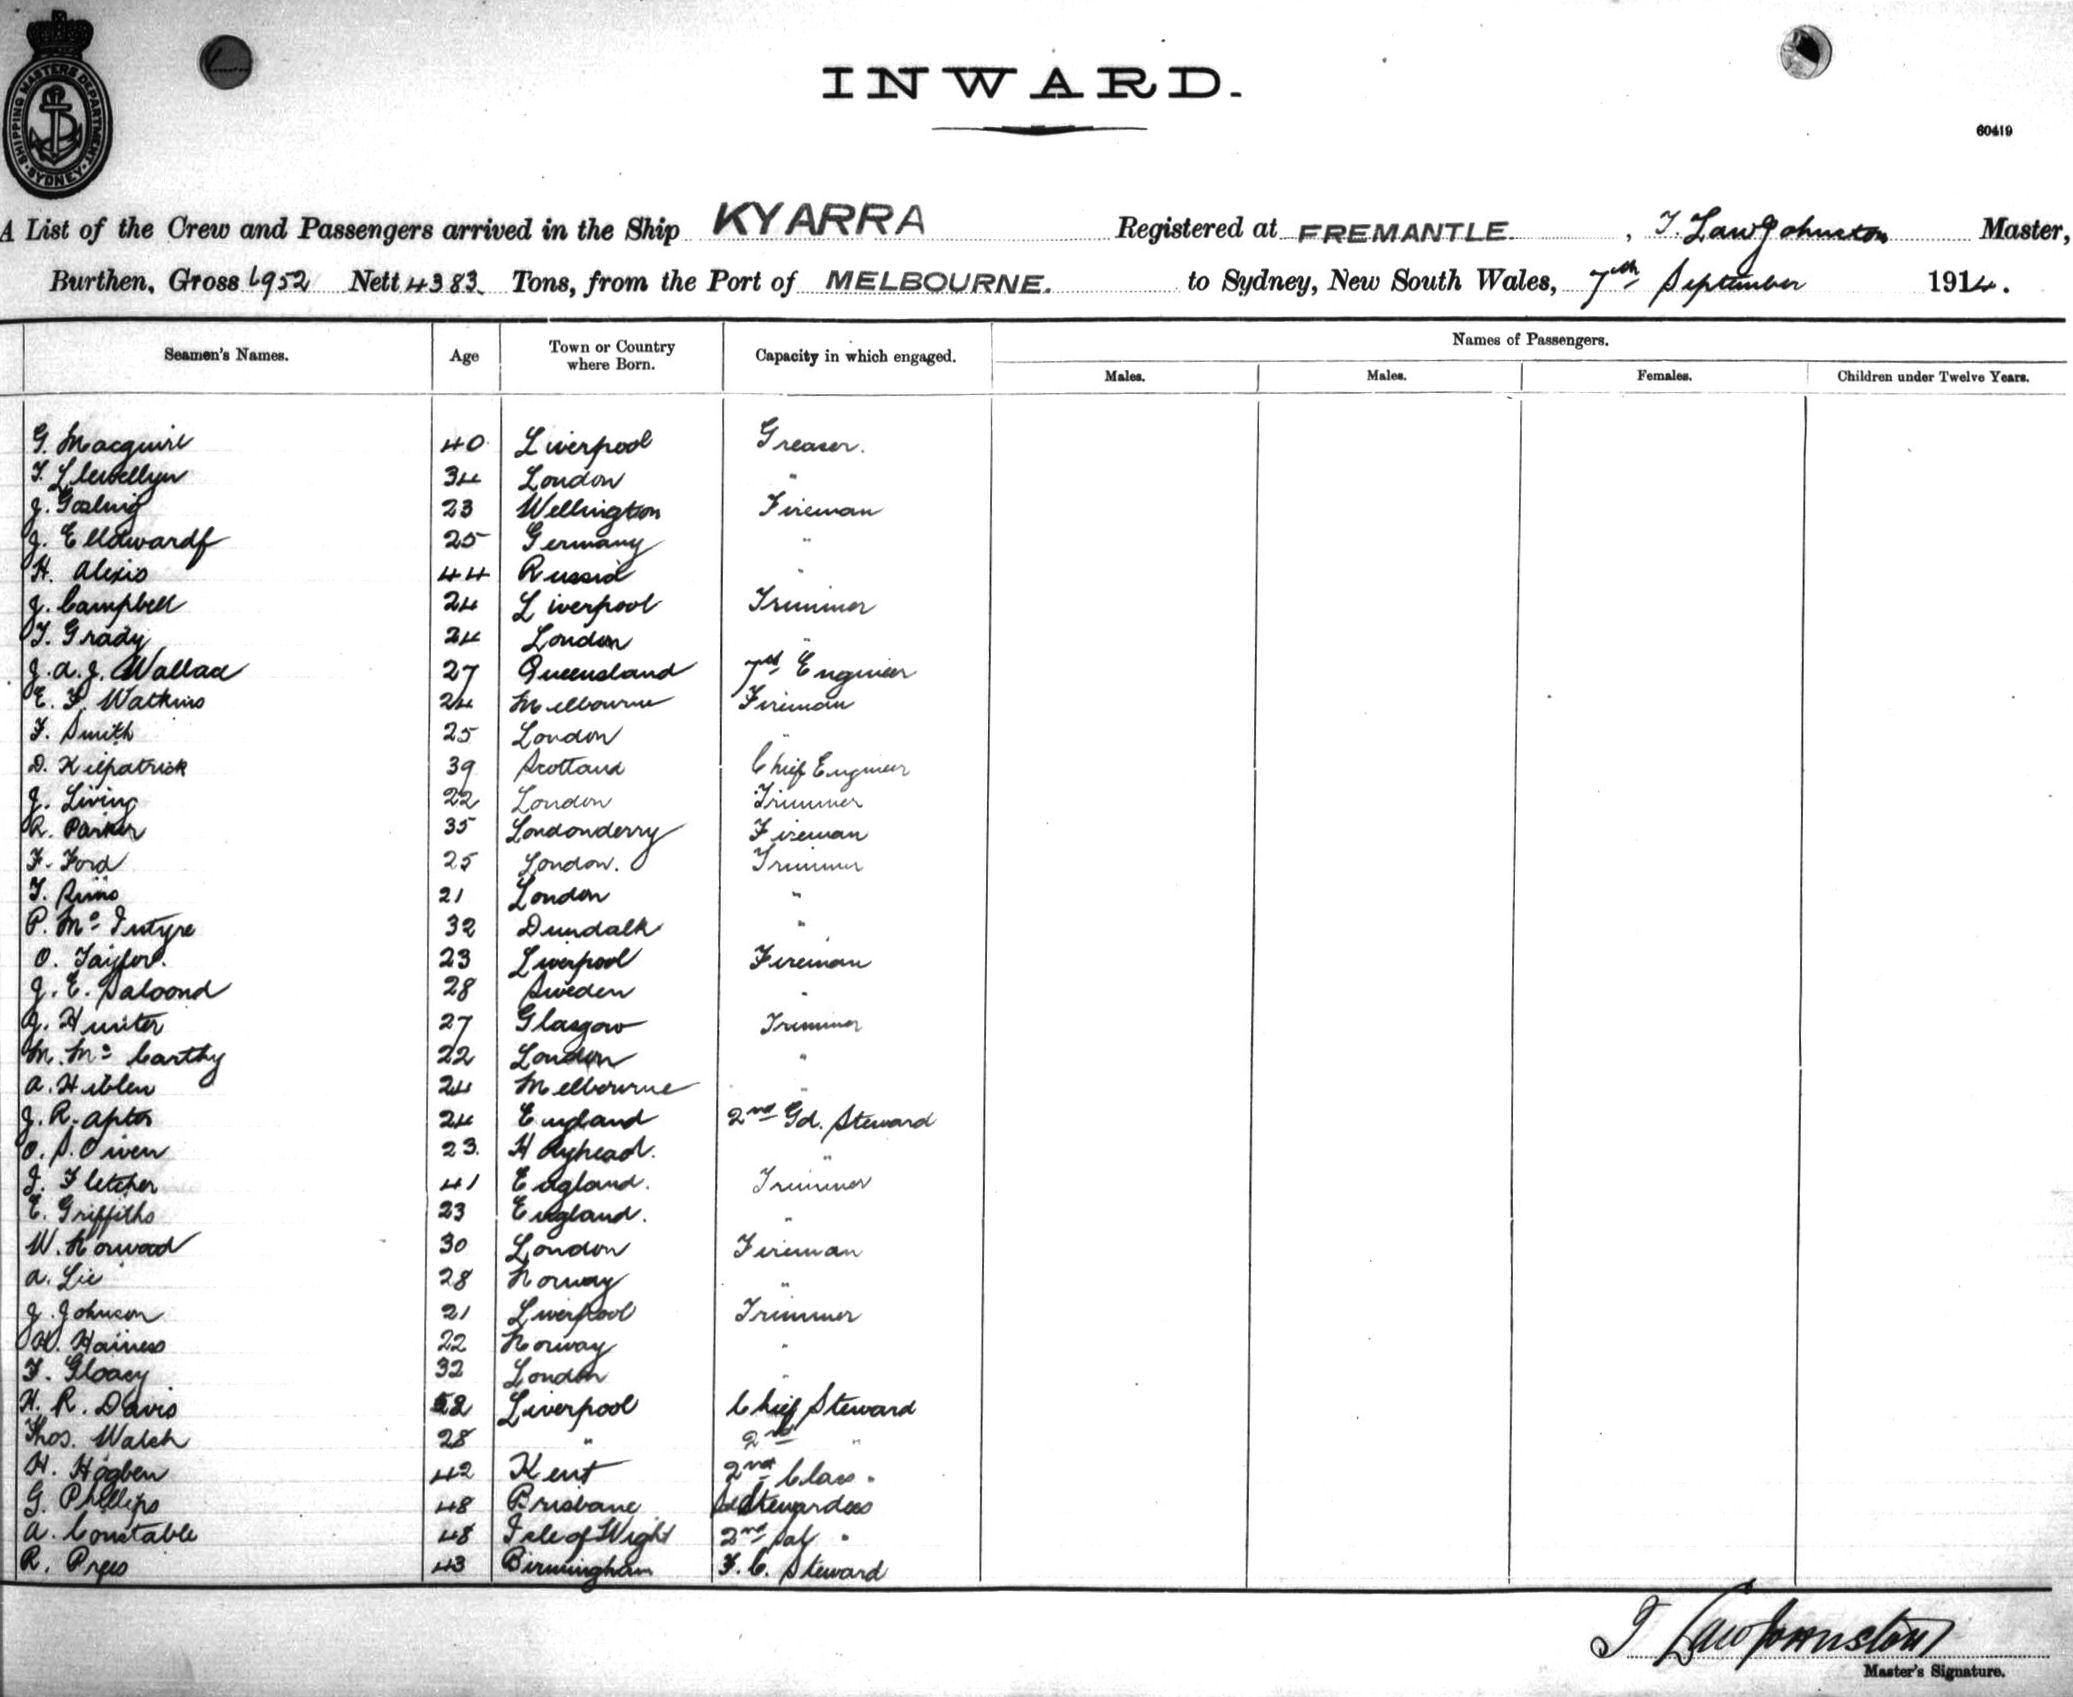 SHIPPING MASTERS DEPARTMENT
SYDNEY
INWARD.
60419
A List of the Crew and Passengers arrived in the Ship KYARRA Registered at FREMANTLE, T. Law Johnston Master,
Burthen, Gross 6952 Nett 4383 Tons, from the Port of MELBOURNE. to Sydney, New South Wales, 7th September 1914.
Seamen's Names. Age Town or Country where Born. Capacity in which engaged. Names of Passengers.
Males. Males. Females. Children under Twelve Years.
G. Macguire 40 Liverpool Greaser.
T. Llewellyn 34 London "
J. Gosling 23 Wellington Fireman
J. 25 Germany "
H. Alexis 44 Russia "
J. Campbell 24 Liverpool Trimmer
T. Grady 24 London "
J. A. J. Wallace 27 Queensland 7th Engineer
E. F. Watkins 24 Melbourne Fireman
F. Smith 25 London "
D. Kilpatrick 39 Scotland Chief Engineer
J. Living 22 London Trimmer
R. Parker 35 Londonderry Fireman
F. Ford 25 London. Trimmer
T. Sims 21 London "
P. Mc Intyre 32 Dundalk "
O. Taylor. 23 Liverpool Fireman
J. E. Saloond 28 Sweden "
J. Hunter 27 Glasgow Trimmer
M. Mc Carthy 22 London "
A. Hiblen 24 Melbourne "
J. R. Apter 24 England 2nd Gd. Steward
O. S. Owen 23. Holyhead. "
J. Fletcher 41 England. Trimmer
E. Griffiths 23 England. "
W. Norwood 30 London Fireman
A. Lie 28 Norway "
J. Johnson 21 Liverpool Trimmer
H. Haines 22 Norway "
F. Gloacy 32 London "
H. R. Davis 52 Liverpool Chief Steward
Thos. Walsh 28 " 2nd "
H. Hogben 42 Kent 2nd Class "
G. Phillips 48 Brisbane Stewardess
A. Constable 48 Isle of Wight 2nd Sal "
R. Prees 43 Birmingham F. C. Steward
T Law Johnston
Master's Signature.